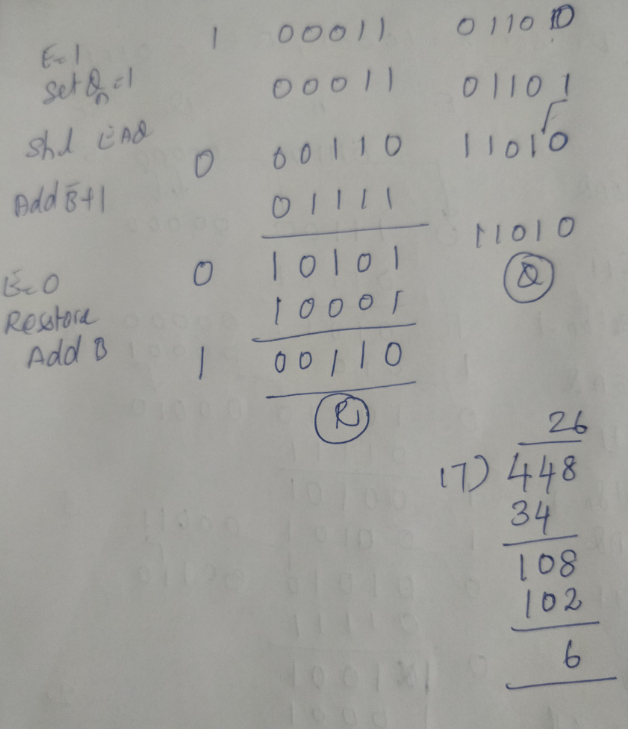 E=1 1 00011 01100
Set Qn=1 00011 01101
Shl EAQ 0 00110 11010
Add B̅+1 01111
11010
E=0 0 10101 Q
Resstore 10001
Add B 1 00110
R
26
17) 448
34
108
102
6